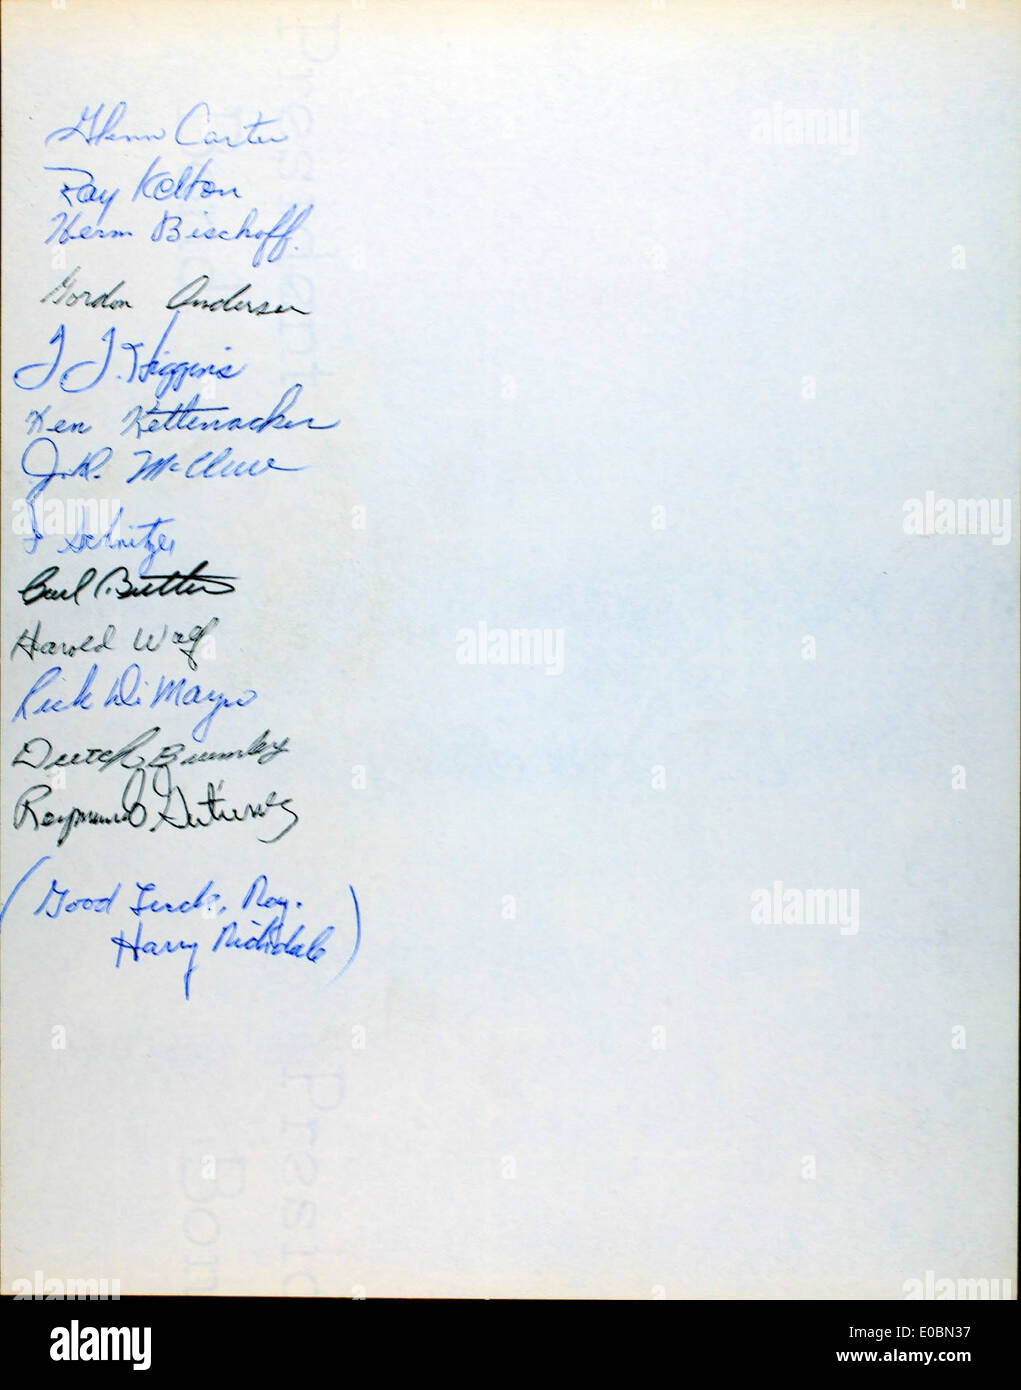 Glenn Carter
Ray Kelton
Herm Bischoff.
Gordon Anderson
J. J. Higgins
Ken Kettenacker
J.D. McClure
Schnitzer
Carl Butler
Harold Wolf
Rick DiMayo
Dutch Brumley
Raymund Gutierrez
(Good Luck, Ray.
Harry
alamy
alamy
alamy
alamy
alamy
alamy
alamy
alamy
Image ID: E0BN37
www.alamy.com